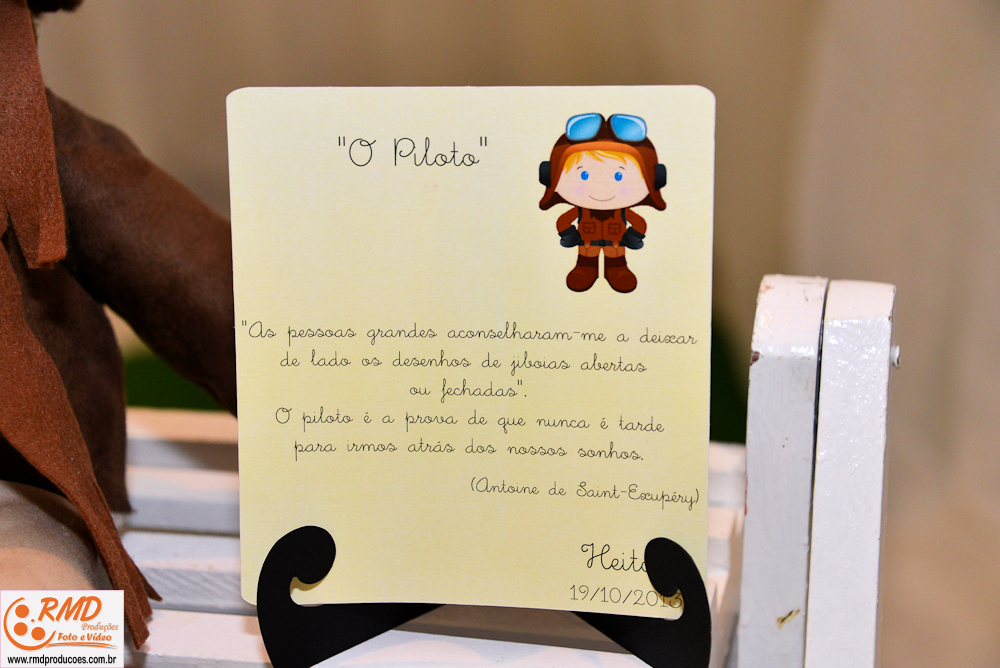 "O Piloto"
"As pessoas grandes aconselharam-me a deixar
de lado os desenhos de jiboias abertas
ou fechadas".
O piloto é a prova de que nunca é tarde
para irmos atrás dos nossos sonhos.
(Antoine de Saint-Exupéry)
19/10/2013
RMD
Produções
Foto e Vídeo
www.rmdproducoes.com.br